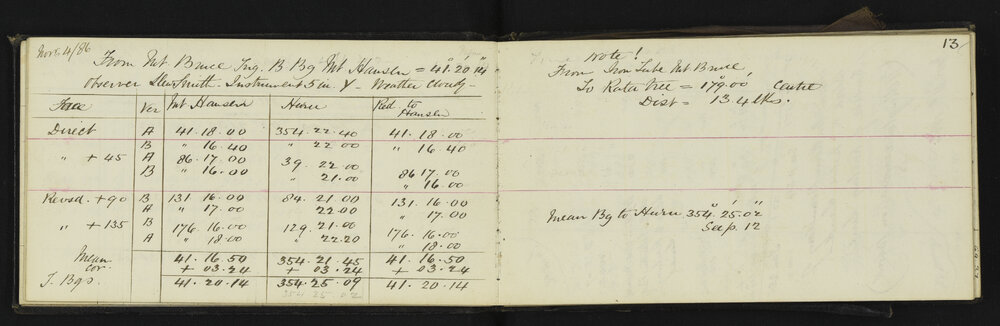 Nov 4/86
From Mt Bruce Trig. B Bg Mt Hansen = 41° 20' 14"
Observer Llew Smith - Instrument 5 in Y - Weather Cloudy -
Face Ver Mt Hansen Huru Red to Hansen
Direct A 41. 18. 00 354. 22. 40 41. 18. 00
B " 16. 40 " 22 00 " 16. 40
" + 45 A 86. 17. 00 39. 22. 00
B " 16. 00 " 21. 00 86 17. 00
" 16. 00
Revsd. + 90 B 131 16. 00 84. 21. 00 131. 16. 00
A " 17. 00 22 00 " 17. 00
" + 135 B 176. 16. 00 129. 21. 00 176. 16. 00
A " 18. 00 " 22 20 " 18. 00
Mean 41. 16. 50 354. 21. 45 41. 16. 50
cor. + 03. 24 + 03. 24 + 03. 24
T. Bgs. 41. 20. 14 354. 25. 09 41. 20. 14
354 25 02
13
Note!
From Iron Tube Mt Bruce
To Rata Tree = 179° 00' Centre
Dist = 13.4 lks.
Mean Bg to Huru 354° 25' 02"
See p. 12